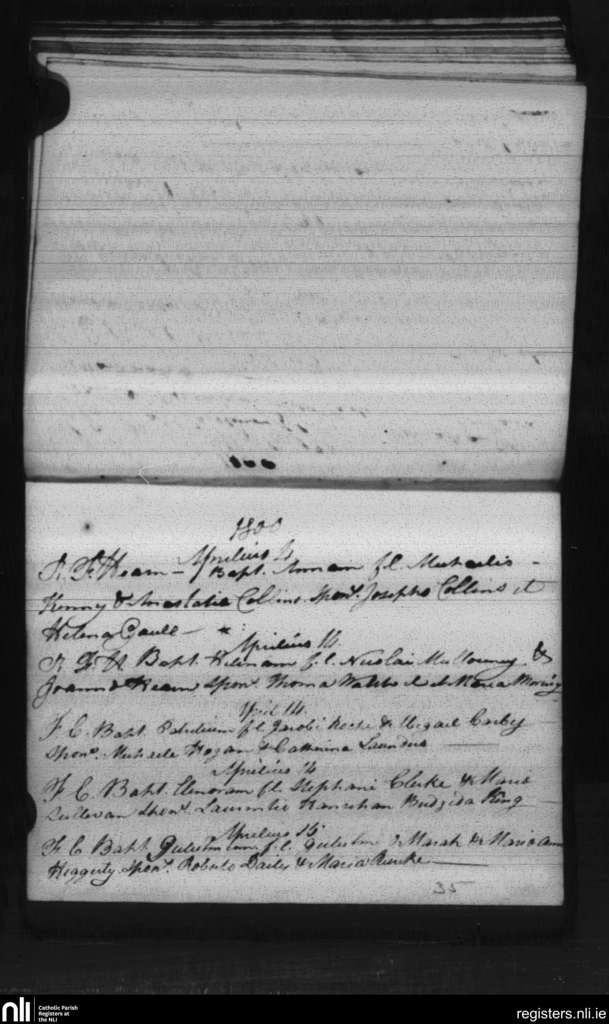 1800
Aprilius 4
R. F. Hearn — Bapt. Annam f.l. Michaelis —
Kenny & Anastatia Collins. Spon. Josepho Collins et
Helena Gaule —
Aprilius 14
R F. H Bapt. Helenam f.l. Nicolai Mullowney &
Joanna Hearn Spon. Thoma Walsh et Maria
April 14.
F C. Bapt. Patricium f l Jacobi Roche & Abigael Carby
Spon. Michaele Hogan & Catherina Saunders
Aprilius 14
F C. Bapt. Elenoram f.l. Stephani Clerke & Maria
Sullevan Spon. Laurentio Hanrahan Bridgida King
Aprilius 15
F C Bapt. f.l. & Maria Ann
Heggerty Spon. Roberto & Maria
25
nli
Catholic Parish
Registers at
the NLI
registers.nli.ie